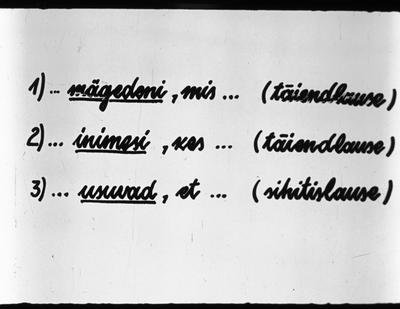 1) ... mägedeni, mis ... (täiendlause)
2) ... inimesi, kes ... (täiendlause)
3) ... usuvad, et ... (sihitislause)